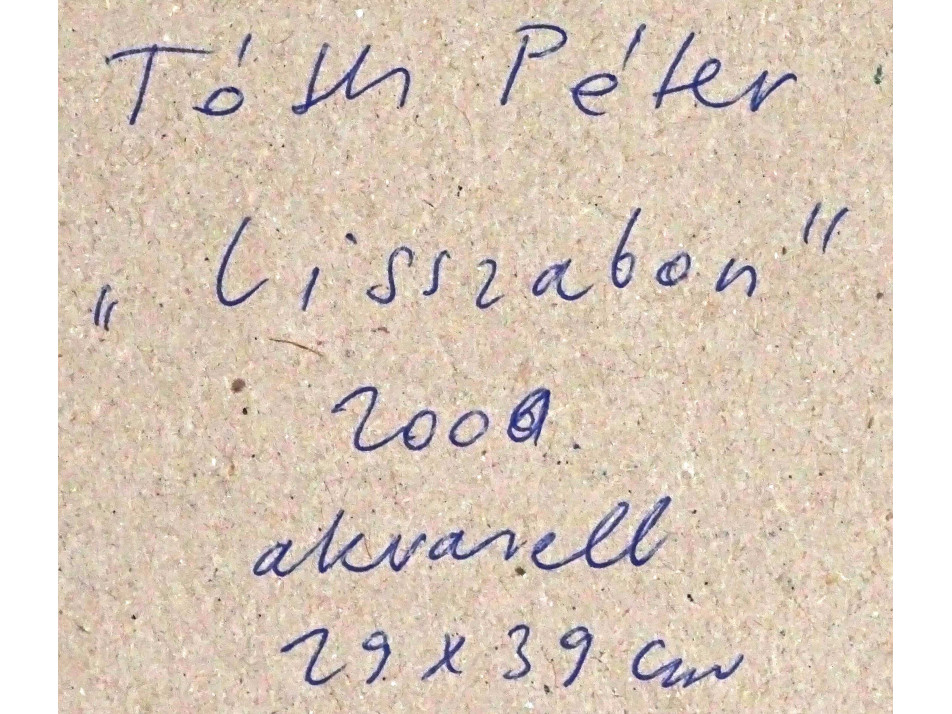 Tóth Péter
„Lisszabon”
akvarell
29 x 39 cm